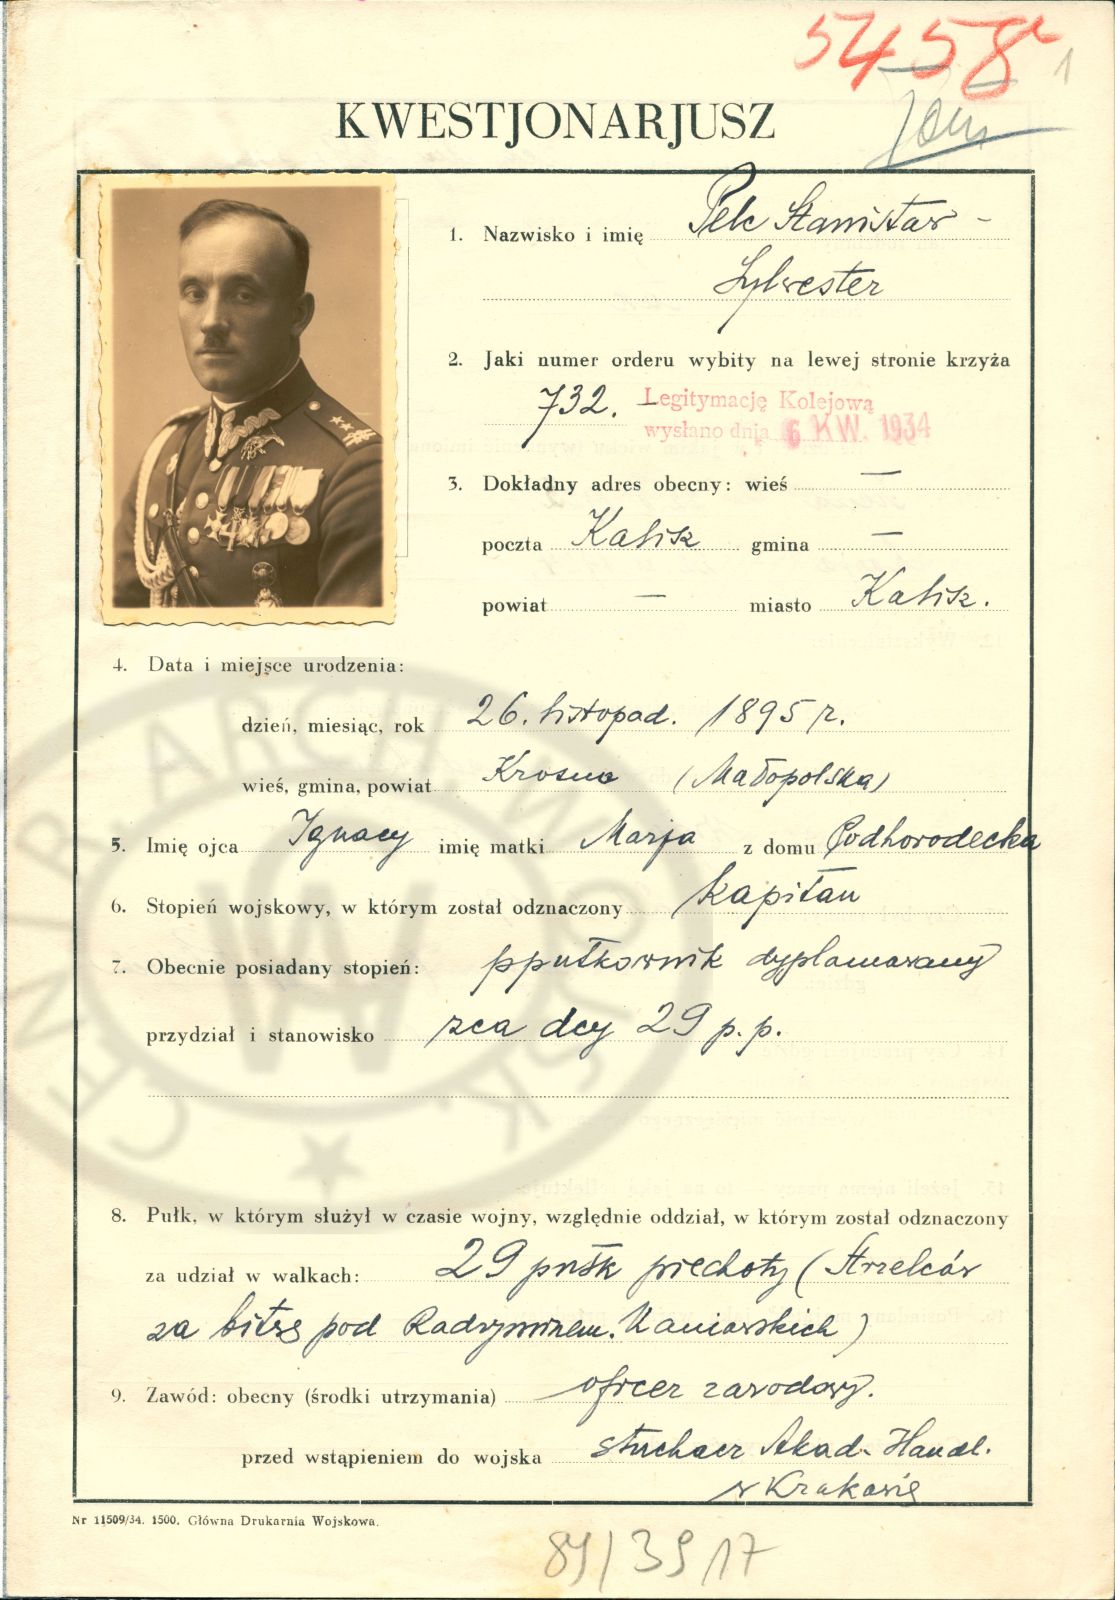 5458
1
KWESTJONARJUSZ
1. Nazwisko i imię Pelc Stanisław -
Sylwester
2. Jaki numer orderu wybity na lewej stronie krzyża
732. Legitymację Kolejową
wysłano dnia 6 KW. 1934
3. Dokładny adres obecny: wieś —
poczta Kalisz gmina —
powiat — miasto Kalisz.
4. Data i miejsce urodzenia:
dzień, miesiąc, rok 26. listopad. 1895 r.
wieś, gmina, powiat Krosno (Małopolska)
5. Imię ojca Ignacy imię matki Marja z domu Podhorodecka
6. Stopień wojskowy, w którym został odznaczony kapitan
7. Obecnie posiadany stopień: ppułkownik dyplomowany
przydział i stanowisko zca dcy 29 p. p.
8. Pułk, w którym służył w czasie wojny, względnie oddział, w którym został odznaczony
za udział w walkach: 29 pułk piechoty (Strzelców
za bitwę pod Radzyminem. Kaniowskich)
9. Zawód: obecny (środki utrzymania) oficer zawodowy.
przed wstąpieniem do wojska słuchacz Akad. Handl.
w Krakowie
Nr 11509/34. 1500. Główna Drukarnia Wojskowa.
CENTR. ARCHIWUM WOJSK.
W